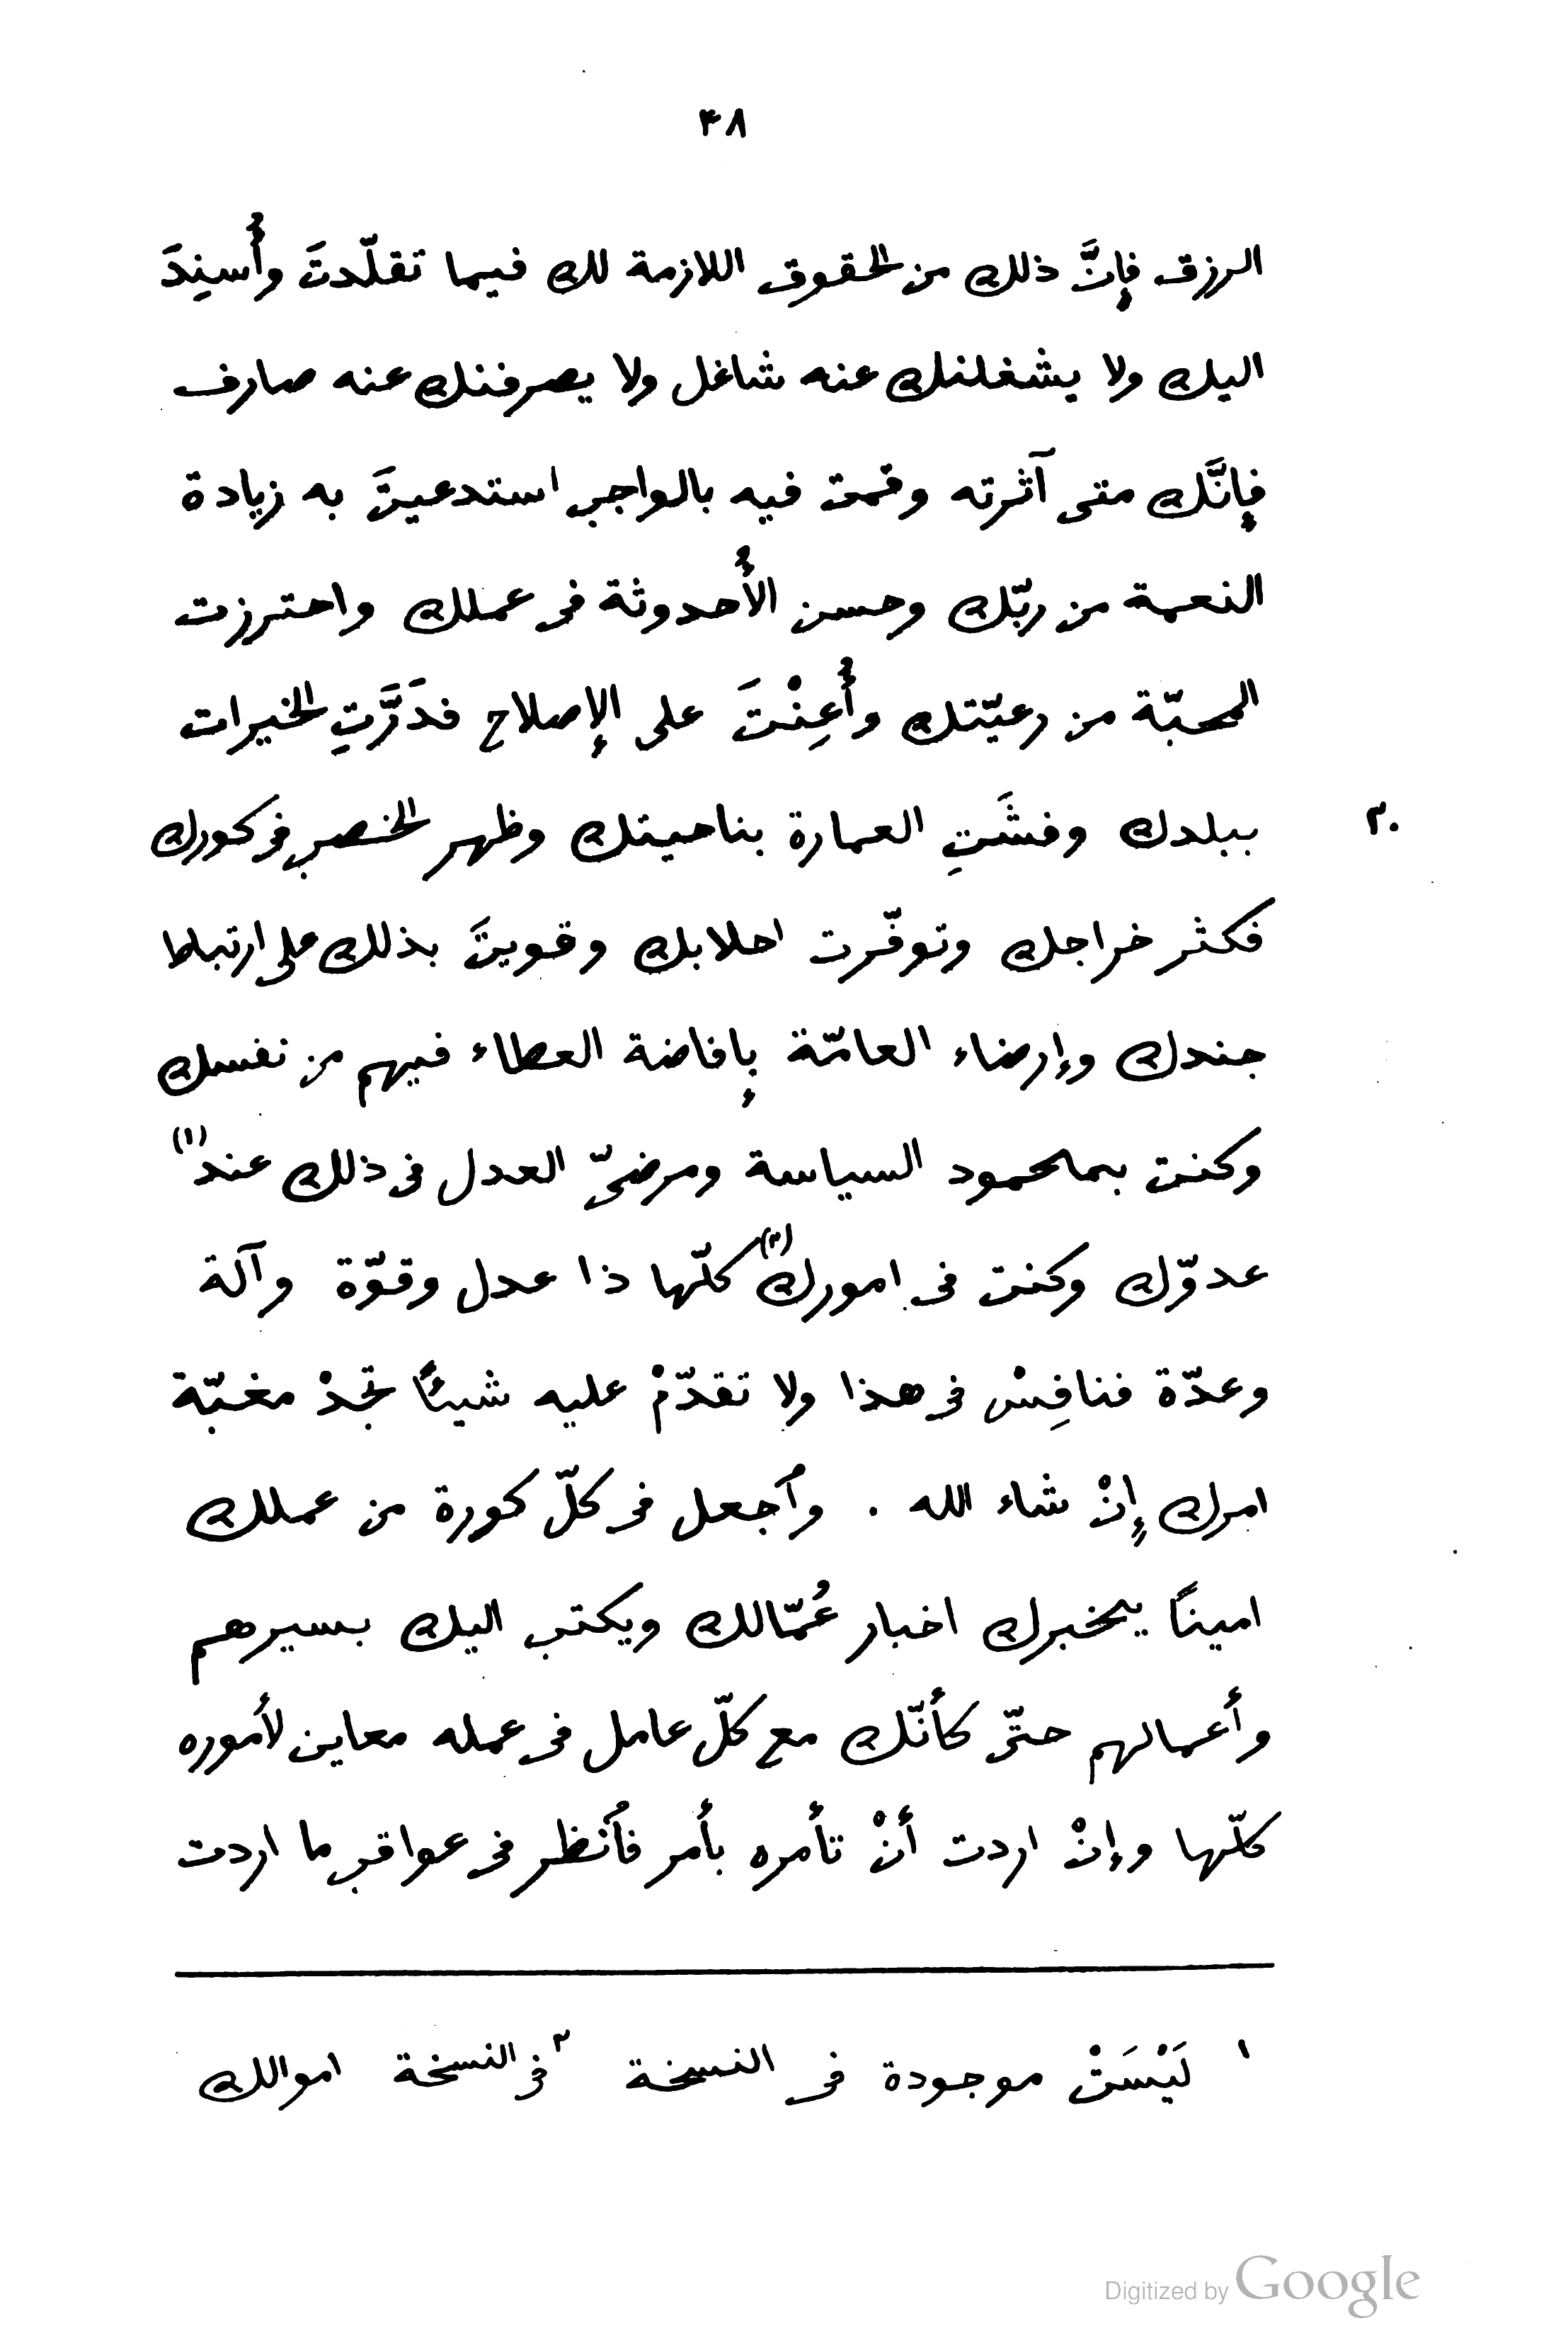 ٣٨
الرزق فإِنَّ ذلك من الحقوق اللازمة لك فيما تقلّدتَ وأُسنِدَ
اليك ولا يشغلنك عنه شاغل ولا يصرفنك عنه صارف
فإِنَّك متى آثرته وقمت فيه بالواجب استدعيتَ به زيادة
النعمة من ربّك وحسن الأُحدوثة فى عملك واحترزت
المحبّة من رعيّتك وأُعِنْتَ على الإصلاح فدَرَّتِ الخيرات
ببلدك وفشَتِ العمارة بناحيتك وظهر الخصب فى كورك
٣٠
فكثر خراجك وتوفّرت احلابك وقويتَ بذلك على ارتباط
جندك وإرضاء العامّة بإفاضة العطاء فيهم من نفسك
وكنت بمحمود السياسة ومرضىّ العدل فى ذلك عند(١)
عدوّك وكنت فى امورك(٢) كلّها ذا عدل وقوّة وآلة
وعدّة فنافِسْ فى هذا ولا تقدّمْ عليه شيئًا تجدْ مغبّة
امرك إنْ شاء الله . وٱجعل فى كلّ كورة من عملك
امينًا يخبرك اخبار عُمّالك ويكتب اليك بسيرهم
وأعمالهم حتّى كأنّك مع كلّ عامل فى عمله معاين لأموره
كلّها وإنْ اردت أنْ تأمره بأمر فٱنظر فى عواقب ما اردت
١ لَيْسَتْ موجودة فى النسخة ٢ فى النسخة اموالك
Digitized by Google